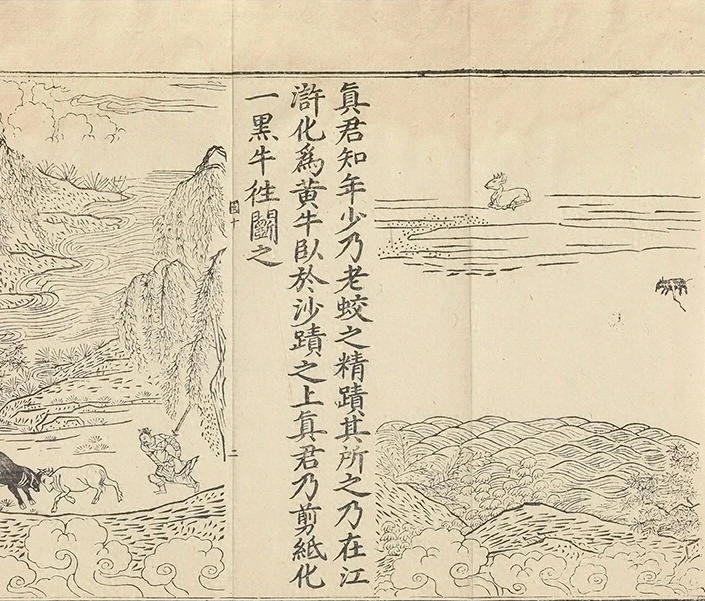 真君知年少乃老蛟之精蹟其所之乃在江
滸化為黃牛臥於沙蹟之上真君乃剪紙化
一黑牛徃鬬之
國十
二